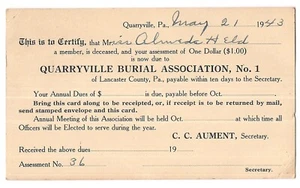 Quarryville, Pa., May 21 1943
This is to Certify, that Mr. Almeda H Eld
a member, is deceased, and your assessment of One Dollar ($1.00)
is now due to
QUARRYVILLE BURIAL ASSOCIATION, No. 1
of Lancaster County, Pa., payable within ten days to the Secretary.
Your Annual Dues of $ is due, payable before Oct.
Bring this card along to be receipted, or, if receipt is to be returned by mail,
send stamped envelope and this card.
Annual Meeting of this Association will be held Oct. at which time all
Officers will be Elected to serve during the year.
C. C. AUMENT, Secretary.
Received the above dues 19
Assessment No. 36
Secretary.